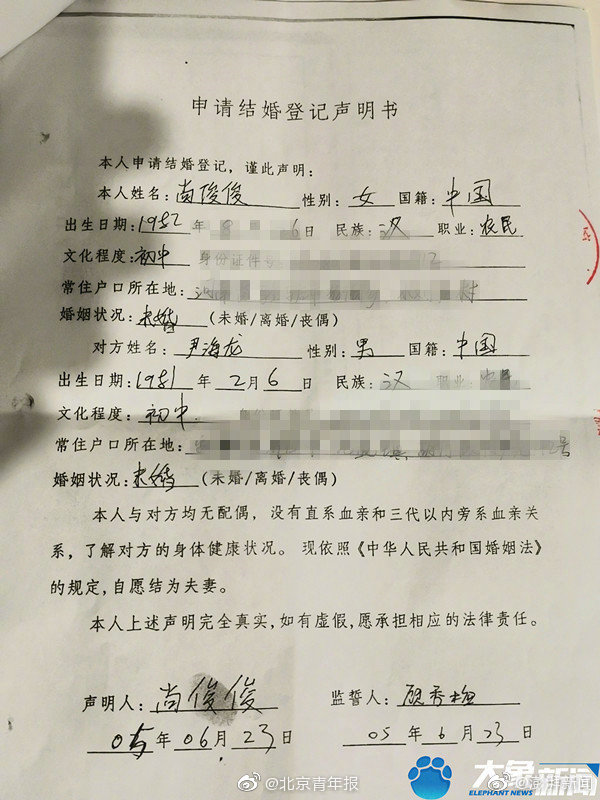 申请结婚登记声明书
本人申请结婚登记，谨此声明：
本人姓名：尚俊俊 性别：女 国籍：中国
出生日期：1982 年 6 日 民族：汉 职业：农民
文化程度：初中 身份证件号
常住户口所在地： 村
婚姻状况：未婚 (未婚/离婚/丧偶)
对方姓名：尹海龙 性别：男 国籍：中国
出生日期：1981 年 2 月 6 日 民族：汉 职业：
文化程度：初中
常住户口所在地： 号
婚姻状况：未婚 (未婚/离婚/丧偶)
本人与对方均无配偶，没有直系血亲和三代以内旁系血亲关
系，了解对方的身体健康状况。现依照《中华人民共和国婚姻法》
的规定，自愿结为夫妻。
本人上述声明完全真实，如有虚假，愿承担相应的法律责任。
声明人：尚俊俊 监誓人：顾秀梅
05 年 06 月 23 日 05 年 6 月 23 日
@北京青年报
大象新闻
ELEPHANT NEWS
@澎湃新闻